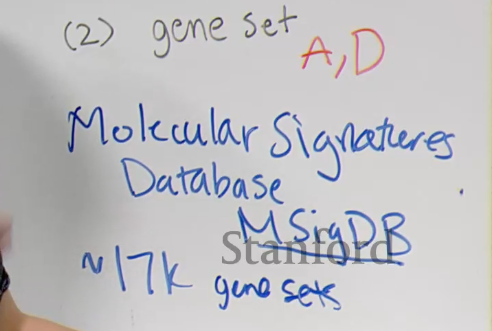 (2) gene set
A, D
Molecular Signatures
Database
MSigDB
Stanford
~17k gene sets